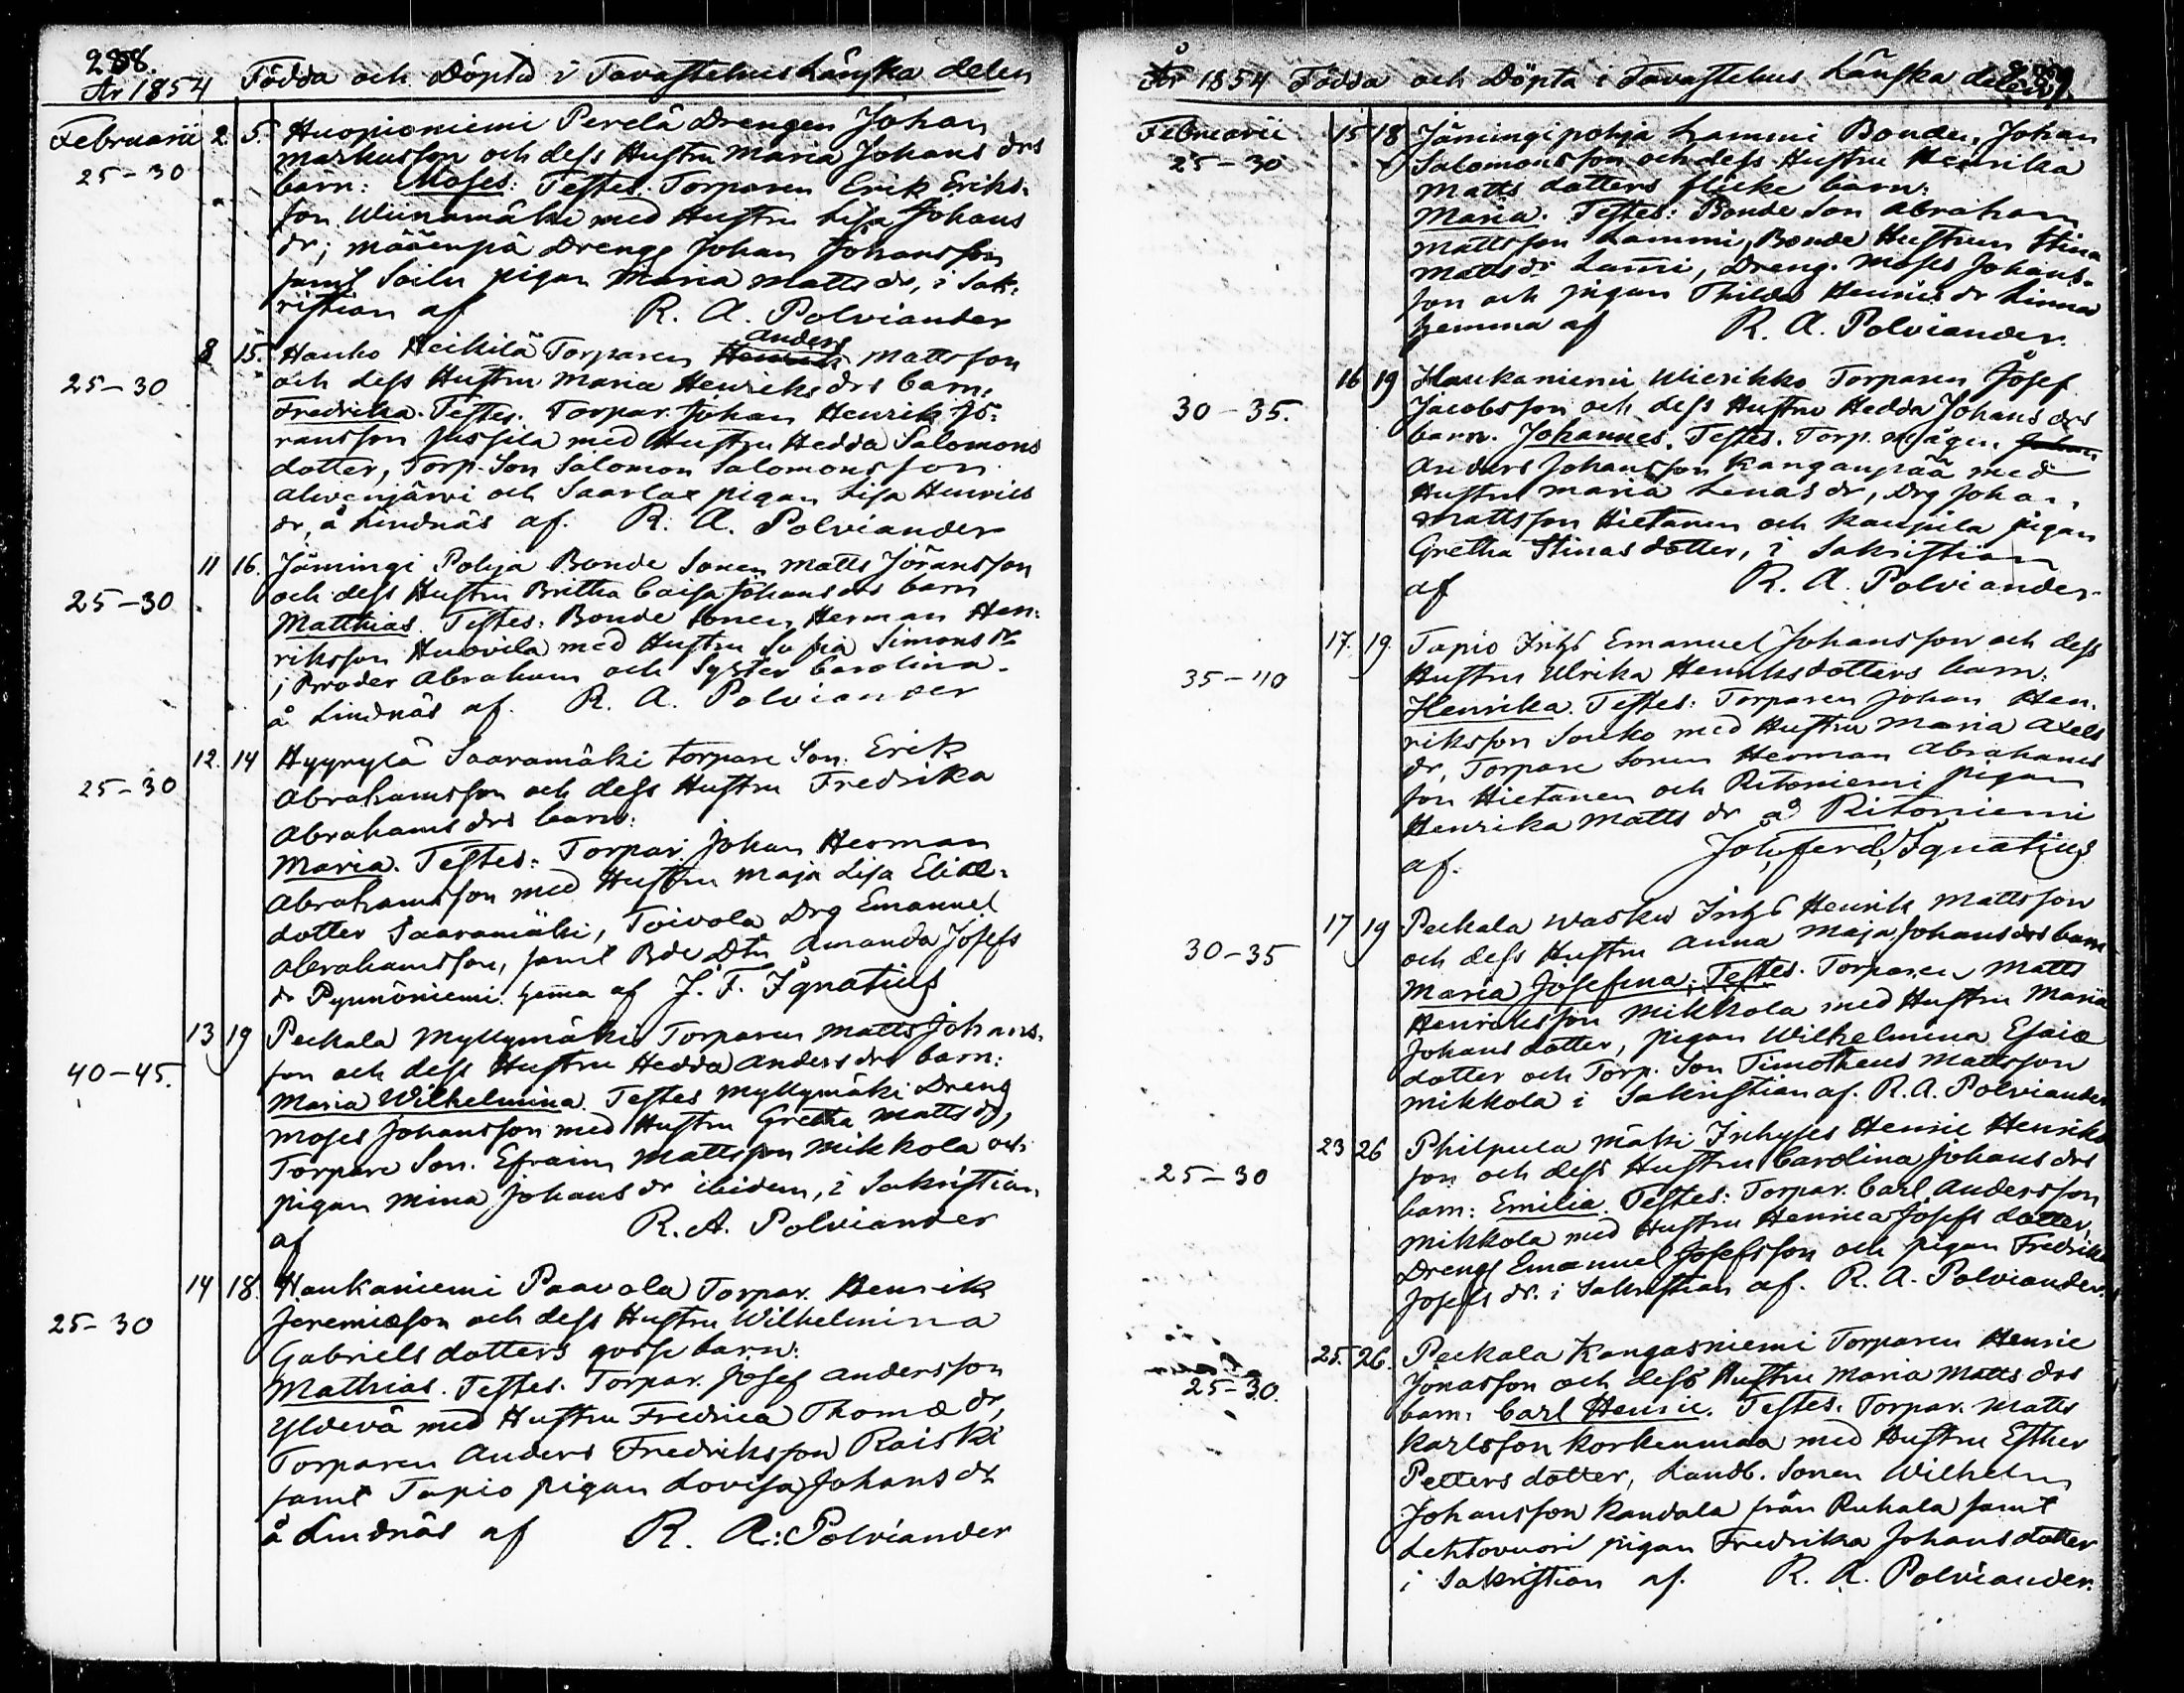 288.
År 1854 Födda och Döpta i Tavastehus Länska delen
Februarii 2. 5. Huopioniemi Perelä Drengen Johan
25-30 Markusson och dess Hustru Maria Johans drs
barn: Moses: Testes. Torparen Erik Eriks-
son Wiinamäki med Hustru Lisa Johans
dr; Määenpä Dreng Johan Johansson
samt Soilu pigan Maria Matts dr, i Sak-
ristian af R. A. Polviander
8 15. Hauho Heikilä Torparen Anders Mattsson
25-30 och dess Hustru Maria Henriks drs barn:
Fredrika. Testes. Torpar. Johan Henrik Jö-
ransson Jussila med Hustru Hedda Salomons
dotter, Torp. Son Salomon Salomonsson
Alvenjärvi och Saarlax pigan Lisa Henrics
dr, å Lindnäs af. R. A. Polviander
11 16. Jämingi Pohja Bonde Sonen Matts Jöransson
25-30 och dess Hustru Britha Caisa Johans drs barn
Matthias. Testes: Bonde Sonen Herman Hen-
riksson Huovila med Hustru Sofia Simons dr
j Broder Abraham och Syster Carolina.
å Lindnäs af. R. A. Polviander
12. 14 Hyyrylä Saaramäki torpare Son. Erik
25-30 Abrahamsson och dess Hustru Fredrika
Abrahams drs barn:
Maria. Testes: Torpar. Johan Herman
Abrahamsson med Hustru Maja Lisa Eliæ-
dotter Saaramäki, Toivola Drg Emanuel
Abrahamsson, samt Bde Dtn Amanda Josefs
dr Pynnöniemi. hema af J. F. Ignatius
13 19 Peckala Myllymäki Torparen Matts Johans-
40-45. son och dess Hustru Hedda Anders drs barn:
Maria Wilhelmina. Testes Myllymäki Dreng
Moses Johansson med Hustru Gretha Matts dr,
Torpare Son. Efraim Mattsson Mikkola och
pigan Mina Johans dr ibidem, i Sakristian
af R. A. Polviander
14 18. Haukaniemi Paavola Torpar. Henrik
25-30 Jeremiæson och dess Hustru Wilhelmina
Gabriels dotters gosse barn:
Mathias. Testes. Torpar. Josef Andersson
Yldevä med Hustru Fredrica Thomæ dr,
Torparen Anders Fredriksson Raiski
samt Tapio pigan Lovisa Johans dr
å Lindnäs af R. A: Polviander
År 1854 Födda och Döpta i Tavastehus Länska delen
Februarii 15 18 Jämingi pohja Lammi Bonden, Johan
25-30 Salomonsson och dess Hustru Henrika
Matts dotters flicke barn:
Maria. Testes: Bonde Son Abraham
Mattsson Lammi, Bonde Hustrun Stina
Matts dr Lam̄i, Dreng. Moses Johans-
son och pigan Thilda Henrics dr Linna
hemma af R. A. Polviander.
16 19 Haukaniemi Wierikko Torparen Josef
30-35. Jacobsson och dess Hustru Hedda Johans drs
barn. Johannes. Testes. Torp. mågen Johan
Anders Johansson Kanganpää med
Hustru Maria Lenas dr, Drg Johan
Mattsson Hietanen och Kaupila pigan
Gretha Stinas dotter, i Sakristian
af R. A. Polviander
17. 19. Tapio Inhs Emanuel Johansson och dess
35-40 Hustru Ulrika Henriksdotters barn:
Henrika. Testes: Torparen Johan Hen-
riksson Souko med Hustru Maria Axels
dr, Torpare Sonen Herman Abrahams
son Hietanen och Ritoniemi pigan
Henrika Matts dr å Ritoniemi
af. Joh. Ferd. Ignatius
17 19 Peckala Wasku Inhs Henrik Mattsson
30-35 och dess Hustru Anna Maja Johans drs barn
Maria Josefina; Testes. Torparen Matts
Henriksson Mikkola med Hustru Maria
Johans dotter, pigan Wilhelmina Esaiæ
dotter och Torp. Son Timotheus Mattsson
Mikkola i Sakristian af. R. A. Polviander
23 26 Philpula Mäki Inhyses Henric Henriks
25-30 son och dess Hustru Carolina Johans drs
barn: Emilia. Testes: Torpar. Carl Andersson
Mikkola med Hustru Henrica Josefs dotter,
Dreng Emanuel Josefsson och pigan Fredrika
Josefs dr. i Sakristian af. R. A. Polviander.
25. 26. Peckala Kangasniemi Torparen Henric
25-30. Jonasson och dess Hustru Maria Matts drs
barn: Carl Henric. Testes. Torpar. Matts
Karlsson Korkenmaa med Hustru Esther
Petters dotter, Landb. Sonen Wilhelm
Johansson Kandala från Ruhala samt
Lehtovuori pigan Fredrika Johans dotter
i Sakristian af. R. A. Polviander.